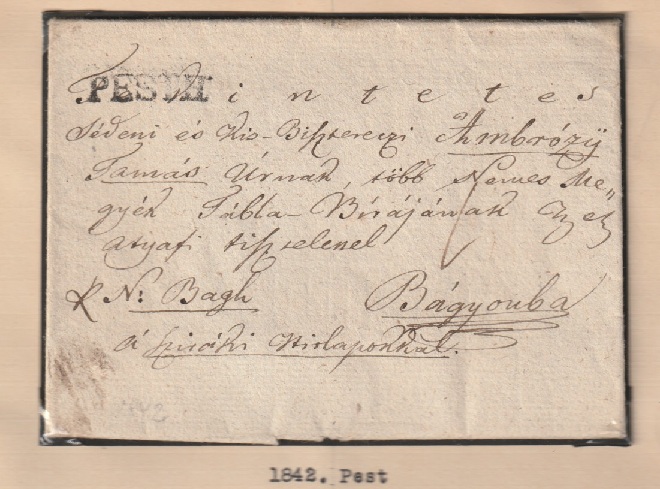 PESTH
Tekintetes
Sédeni és Kis-Biszterczi Ambrózy
Tamás Úrnak, több Nemes Me=
gyék Tábla-Bírájának
atyafi tisztelettel
N: Bagh Bágyonba
á hirlapokkal.
1842
1842. Pest